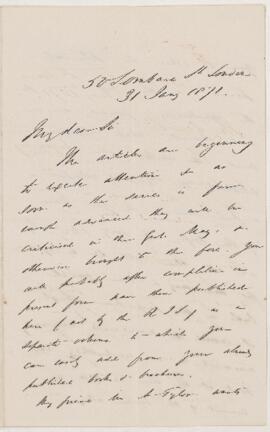 50 Lombard St London
31 Jany 1871.
My dear Sir
The articles are beginning
to excite attention & as
soon as the series is far
enough advanced they will be
criticised in the Geol. Mag. or
otherwise brought to the fore. You
will probably after completion in
present form have them published
here (not by the R I S) as a
separate volume to which you
can easily add from your already
published books & brochures.
My friend Mr A. Tylor wants